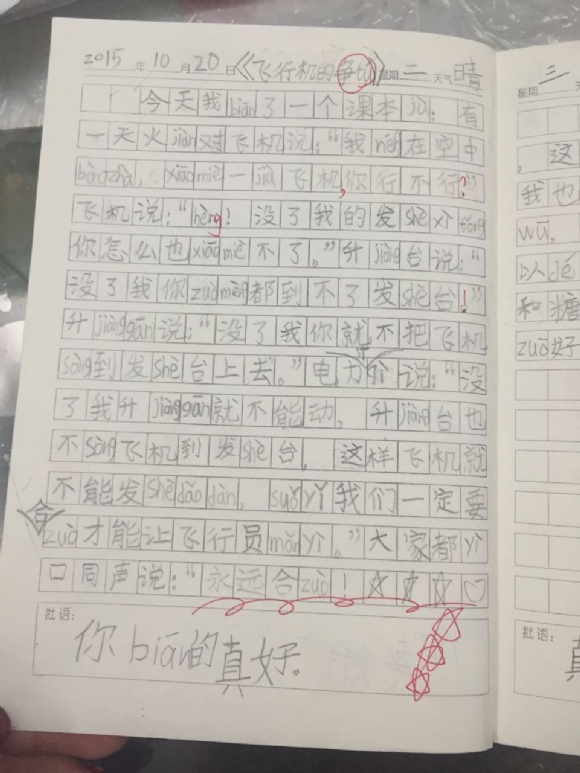 2015年10月20日《飞行机的争tú》星期二 天气晴
今天我biān了一个课本jù：有
一天火jiàn对飞机说："我néng在空中
bàozhà，xiāomiè一jià飞机，你行不行？"
飞机说："hèng！没了我的发shè xì tǒng
你怎么也xiāomiè不了。"升jiàng台说："
没了我你zuò mèng都到不了发shè台！"
升jiànggān说："没了我你就不把飞机
sòng到发shè台上去。"电力 说："没
了我升jiànggān就不能动，升jiàng台也
不sòng飞机到发shè台，这样飞机就
不能发shè dǎo dàn，suǒ yǐ我们一定要
合zuò才能让飞行员mǎn yì。"大家都yì
口同声说："永远合zuò！☆☆☆
批语：
你biān的真好。
星期三
，这
我也
wū，
以
和糖
zuò好
批语：
真